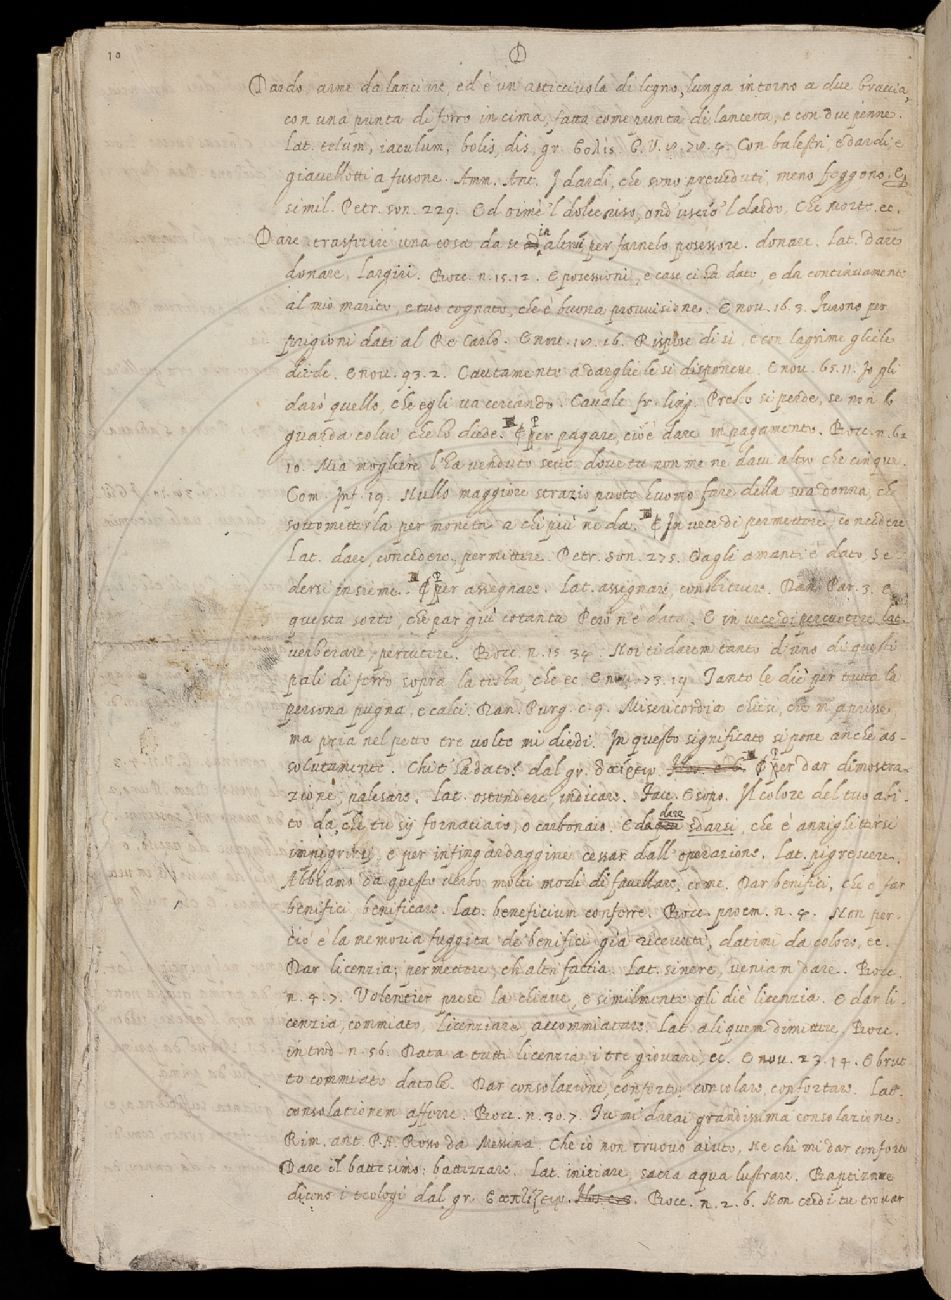 10
D
Dardo, arme da lanciare, ed è un asticciuola di legno, lunga intorno a due braccia,
con una punta di ferro in cima, fatta come punta di lancetta, e con due penne.
Lat. telum, iaculum, bolis, dis, gr. βολίς. G.V. 8. 78. 4. Con balestri, e dardi e
giavellotti a fusone. Amm. Ant. I dardi, che sono preveduti, meno feggono. E
simil. Petr. son. 229. Ed oimè 'l dolce riso, ond' uscio 'l dardo, Che morte. ec.
Dare, trasferire una cosa da se ad in altrui per farnelo posessore. donare. Lat. dare
donare, largiri. Bocc. n. 15. 12. E posessioni, e case ci ha dato, e dà continuamente
al mio marito, e tuo cognato, che è buona provvisione. E nov. 16. 3. Furono per
prigioni dati al Re Carlo. E nov. 18. 16. Rispose di sì, e con lagrime gliele
diede. E nov. 93. 2. Cautamente a dargliele si dispone. E nov. 65. 11. Io gli
darò quello, che egli va cercando. Cavalc. fr. ling. Presto si perde, se non lo
guarda colui, che lo diede. Per pagare, cioè dare in pagamento. Bocc. n. 62
10. Mia mogliere l'ha venduto sette, dove tu non me ne davi altro che cinque.
Com. Inf. 19. Nullo maggiore strazio puote huomo fare della sua donna, che
sottometterla per moneta a chi più ne dà. In vece di permettere, concedere
Lat. dare, concedere, permittere. Petr. son. 275. Dagli amanti è dato Se-
dersi insieme. Per assegnare. Lat. assegnare, constituere. Dan. Par. 3. E
questa sorte, che par giù cotanta Però n'è data. E in vece di percuotere lat.
verberare, percutere. Bocc. n. 15. 34. Noi ti darem tanto d'uno di questi
pali di ferro sopra la testa, che ec. E nov. 73. 19. Tanto le diè per tutta la
persona pugna, e calci. Dan. Purg. c. 9. Misericordia chiesi, che m'aprisse
ma pria nel petto tre volte mi diedi. In questo significato si pone anche as-
solutamente. Chi t'ha dato? dal gr. Per dar dimostra-
zione, palesare. Lat. ostendere, indicare. Fav. Esop. Il colore del tuo abi-
to dà, che tu sij fornaciaio, o carbonaio. E da dare sdarsi, che è annighittirsi
impigrirsi, e per infingardaggine cessar dall'operazione. Lat. pigrescere.
Abbiamo da questo verbo molti modi di favellare, come. Dar benifici, che è far
benifici, beneficare. Lat. beneficium conferre. Bocc. proem. n. 4. Non per-
ciò è la memoria fuggita de' benifici già ricevuti, datimi da coloro, ec.
Dar licenzia; permettere, ch'altri faccia. Lat. sinere, veniam dare. Bocc.
n. 4. 7. Volentier prese la chiave, e similmente gli diè licenzia. E dar li-
cenzia, commiato, licenziare, accommiatare. Lat. aliquem dimittere. Bocc.
introd. n. 56. Data a tutti licenzia i tre giovani, ec. E nov. 23. 14. E brut-
to commiato datole. Dar consolazione, conforto, consolare, confortare. Lat.
consolationem afferre. Bocc. n. 30. 7. Tu mi darai grandissima consolazione.
Rim. ant. P.N. Rosso da Messina. Che io non truovo aiuto, Ne chi mi dar conforto
Dare il battesimo: battezzare. Lat. initiare, sacra aqua lustrare. Baptizare
dicono i teologi dal gr. βαπτίζειν. Bocc. n. 2. 6. Non credi tu trovar